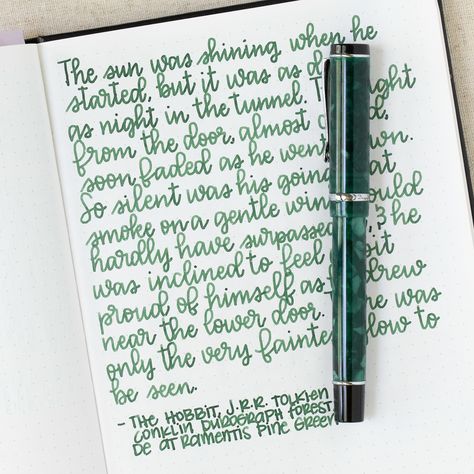 The sun was shining when he
started, but it was as
as night in the tunnel.
from the door, almost
soon faded as he
So silent was his going
smoke on a gentle
hardly have & he
was inclined to feel bit
proud of himself as drew
near the lower door. was
only the very to
be seen.
- THE HOBBIT, J.R.R. TOLKIEN
CONKLIN DUROGRAPH FOREST,
DE ATRAMENTIS PINE GREEN